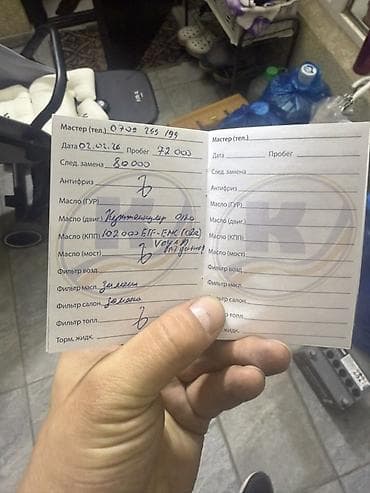 Мастер (тел.) 0709 299 199
Дата 02.02.26 Пробег 72 000
След. замена 80 000
Антифриз
Масло (ГУР)
Масло (двиг)
Масло (КПП) 102000
Масло (мост)
Фильтр возд.
Фильтр масл. замена
Фильтр салон. замена
Фильтр топл.
Торм. жидк.
Мастер (тел.)
Дата Пробег
След. замена
Антифриз
Масло (ГУР)
Масло (двиг)
Масло (КПП)
Масло (мост)
Фильтр возд.
Фильтр масл.
Фильтр салон.
Фильтр топл.
Торм. жидк.